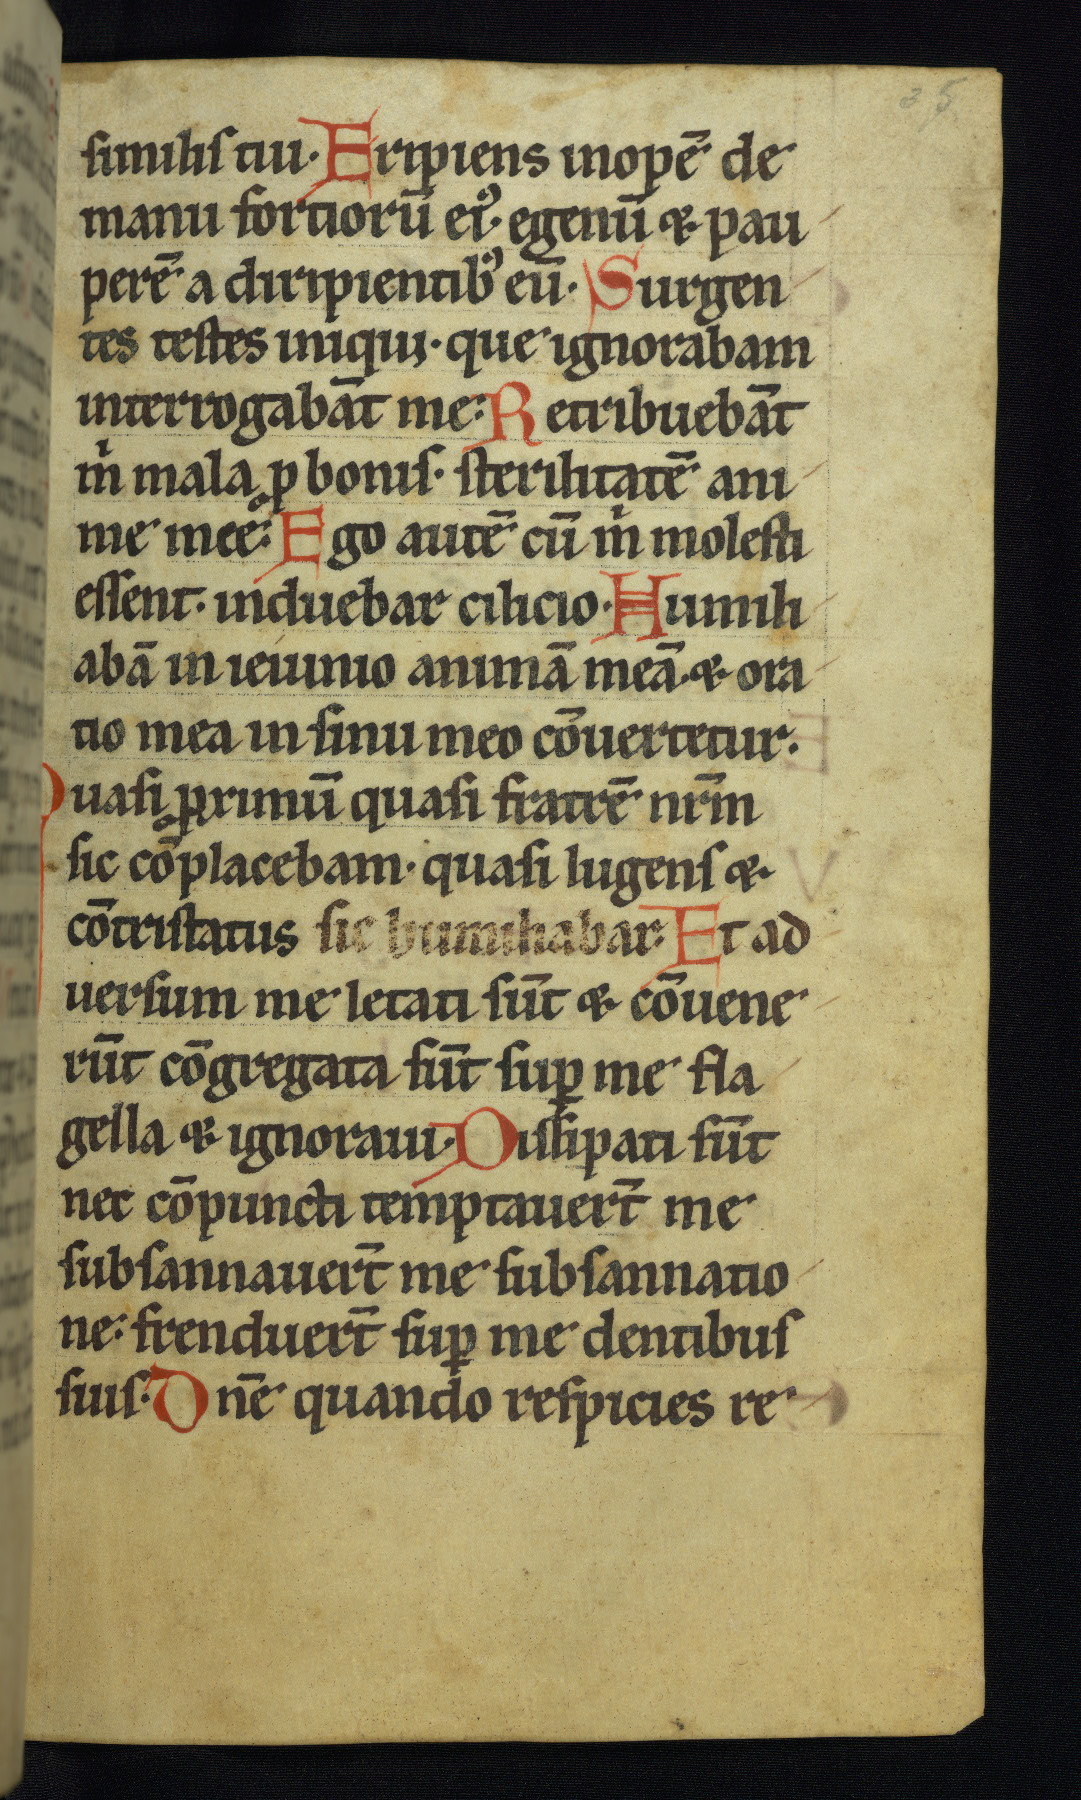 35
similis tui· Eripiens inopē de
manu fortiorū ei᷒· egenū & pau
perē a diripientib᷒ eū· Surgen
tes testes iniqui· que ignorabam
interrogabāt me: Retribuebāt
m̍ mala ꝓ bonis· sterilitatē ani
me mee: Ego autē cū m̍ molesti
essent· induebar cilicio· Humili
abā in ieiunio animā meā· & ora
tio mea in sinu meo cōuertetur·
Quasi ꝓximū quasi fratrē nr̄m
sic cōplacebam· quasi lugens &
cōtristatus sic humiliabar: Et ad
uersum me letati sūt & cōuene
rūt cōgregata sūt suꝑ me fla
gella & ignoraui· Dissipati sūt
nec cōpuncti temptauer̄t me
subsannauer̄t me subsannatio
ne: frenduer̄t suꝑ me dentibus
suis· Dn̄e quando respicies re